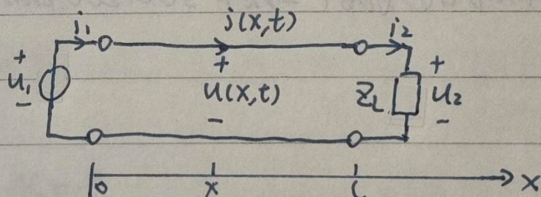 i₁ i(x,t) i₂
+ + +
u₁ u(x,t) Z_L u₂
- - -
0 x l x